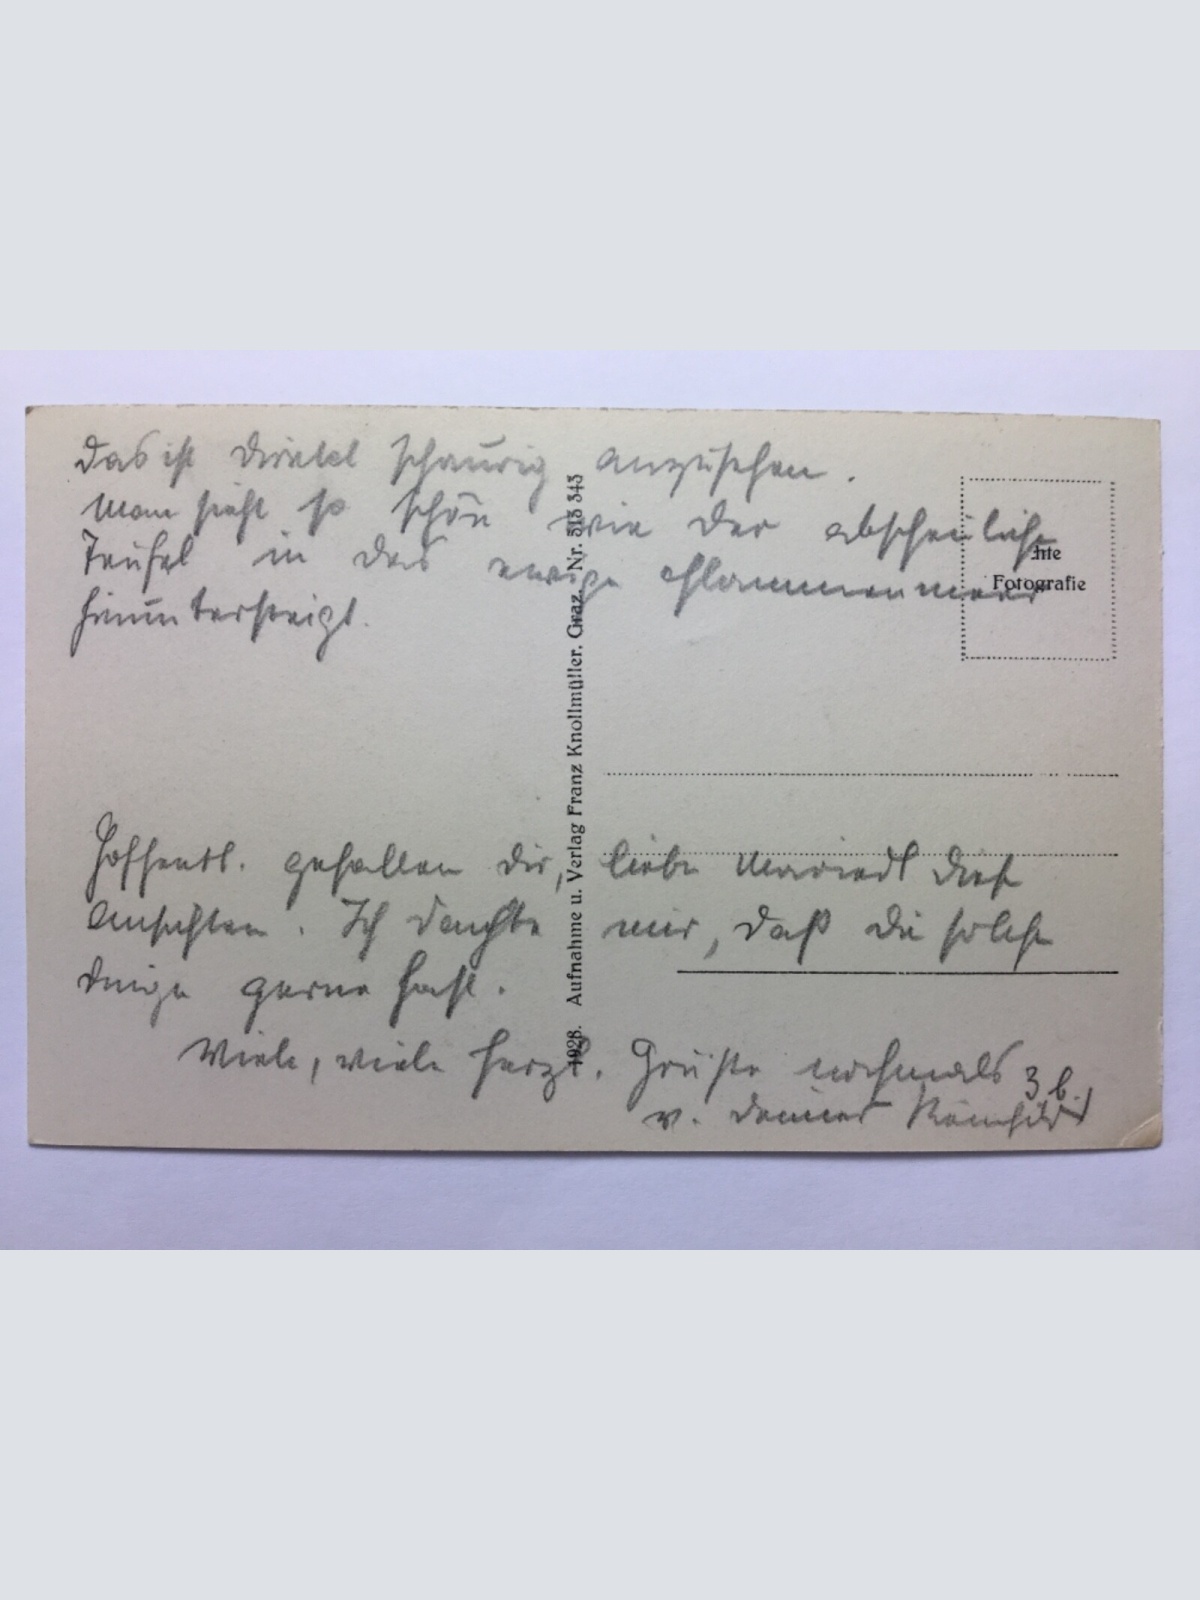 Das ist direkt schaurig anzusehen.
Man sieht so schön wie der abscheuliche
Teufel in das ewige Flammenmeer
hinuntersteigt.
Hoffentl. gefallen dir, liebe Mariedl diese
Ansichten. Ich dachte mir, daß du solche
Dinge gerne hast.
Viele, viele herzl. Grüße nochmals
v. deiner
3 b.
hte
Fotografie
1928. Aufnahme u. Verlag Franz Knollmüller, Graz. Nr. 513 343